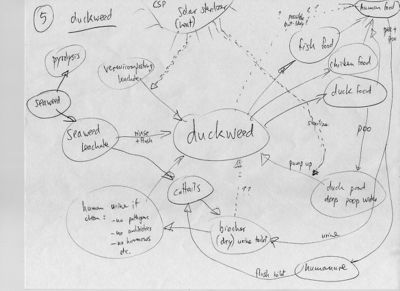 5 duckweed
CSP
solar sterilizer
(heat)
human food
pee +
poo
possible
but
fish food
chicken food
duck food
pyrolysis
vermicomposting
leachate
seaweed
seaweed
leachate
rinse
+ flush
duckweed
sterilize
poo
pump up
duck pond
deep poop water
cattails
human urine if
clean:
- no pathogens
- no antibiotics
- no hormones
etc.
??
biochar
(dry) urine toilet
urine
flush toilet
humanure